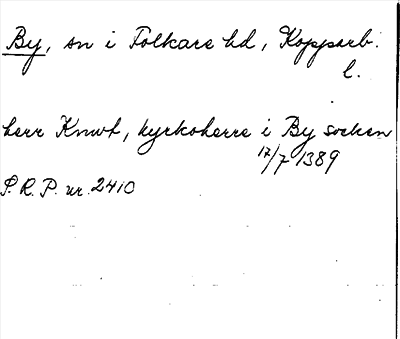 By, sn i Folkare hd, Kopparb.
l.
herr Knwt, kyrkoherre i By socken
17/7 1389
S.R.P. nr. 2410